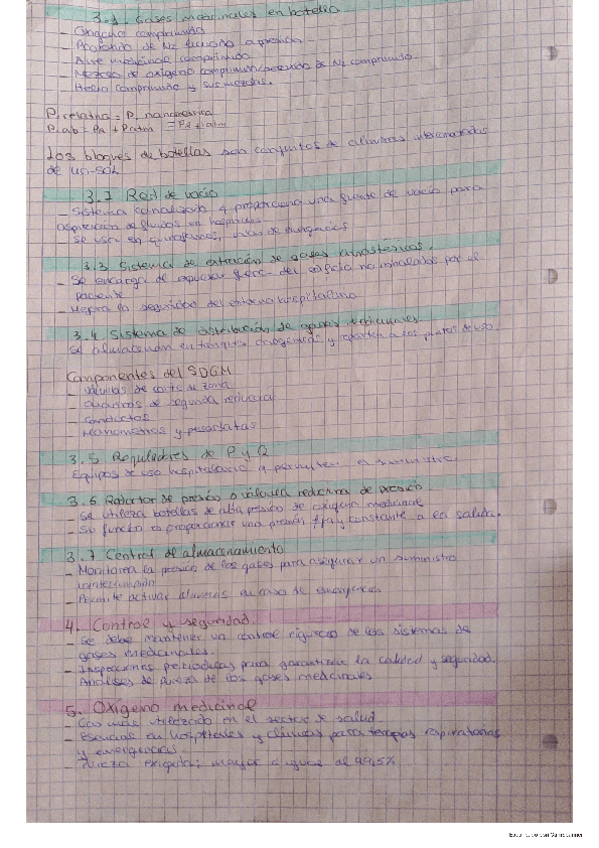 3.1 Gases medicinales en botella
- Oxígeno comprimido
- Protóxido de N2 licuado a presión
- Aire medicinal comprimido
- Mezcla de oxígeno comprimido/protóxido de N2 comprimido.
- Helio comprimido y sus mezclas.
P. relativa = P. manométrica
P. ab = PR + Patm = PR + atm
Los bloques de botellas son conjuntos de cilindros interconectados
de
3.2 Red de vacío
- Sistema canalizado q proporciona una fuente de vacío para
aspiración de fluidos en hospitales.
- Se usa en quirófanos, salas de
3.3 Sistema de extracción de gases anestésicos.
- Se encarga de expulsar fuera del edificio no inhalados por el
paciente
- Mejora la seguridad del entorno hospitalario
3.4 Sistema de distribución de gases medicinales
Se almacenan en tanques criogénicos y reparten a los puntos de uso.
Componentes del SDGM
- Válvulas de corte de zona
- Cuadros de segunda reducción
- Conductos
- Manómetros y presostatos
3.5. Reguladores de P y Q
Equipos de uso hospitalario q permiten el suministro.
3.6 Reductor de presión o válvula reductora de presión
- Se utiliza botellas de alta presión de oxígeno medicinal
- Su función es proporcionar una presión fija y constante a la salida.
3.7 Central de almacenamiento
- Monitorea la presión de los gases para asegurar un suministro
ininterrumpido
- Permite activar alarmas en caso de emergencia
4. Control y seguridad.
- Se debe mantener un control riguroso de los sistemas de
gases medicinales.
- Inspecciones periódicas para garantizar la calidad y seguridad.
Análisis de pureza de los gases medicinales
5. Oxígeno medicinal
- Gas más utilizado en el sector de salud
- Esencial en hospitales y clínicas para terapias respiratorias
y emergencias.
- Pureza exigida: mayor o igual al 99,5%